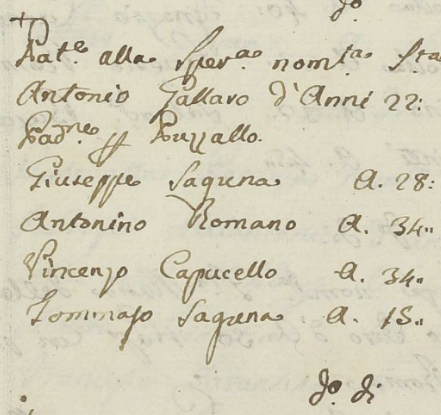 Jo.
Pat.e alla Sper.a nom.ta S.ta
Antonio Gallaro d'Anni 22:
Pad.ne Pozzallo.
Giuseppe Laguna A. 28:
Antonino Romano A. 34..
Vincenzo Capucello A. 34..
Tommaso Laguna A. 15..
Jo. di